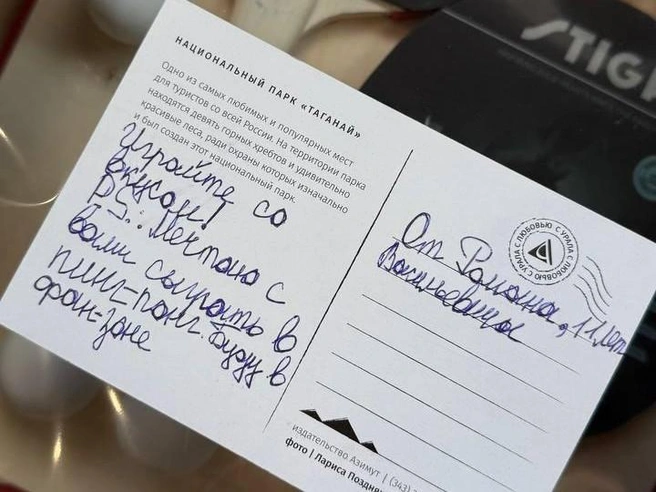 НАЦИОНАЛЬНЫЙ ПАРК «ТАГАНАЙ»
Одно из самых любимых и популярных мест
для туристов со всей России. На территории парка
находятся девять горных хребтов и удивительно
красивые леса, ради охраны которых изначально
и был создан этот национальный парк.
Играйте со
вкусом!
P.S.: Мечтаю с
Вами сыграть в
пинг-понг. Буду в
фан-зоне
От Романа, 11 лет
Васильевича
С ЛЮБОВЬЮ С УРАЛА С ЛЮБОВЬЮ С УРАЛА
издательство Азимут | (343)
фото | Лариса Поздне
STIGA